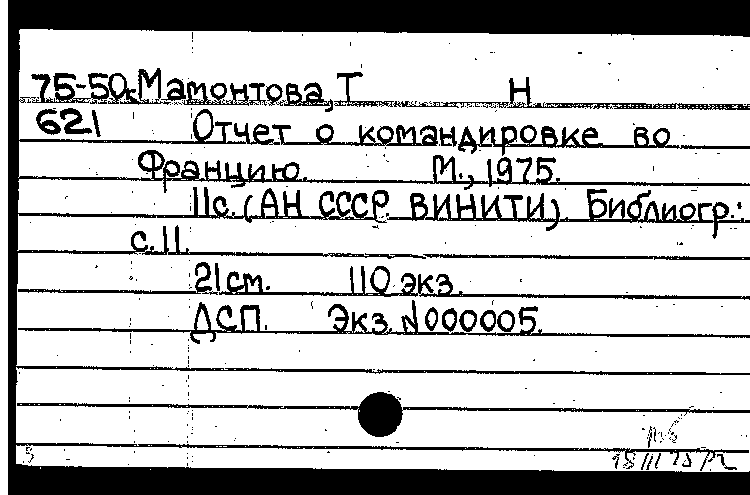 75-50к Мамонтова, Т Н
621 Отчет о командировке во
Францию. М., 1975.
11с. (АН СССР. ВИНИТИ). Библиогр.:
с.11.
21см. 110 экз.
ДСП. Экз. №000005.